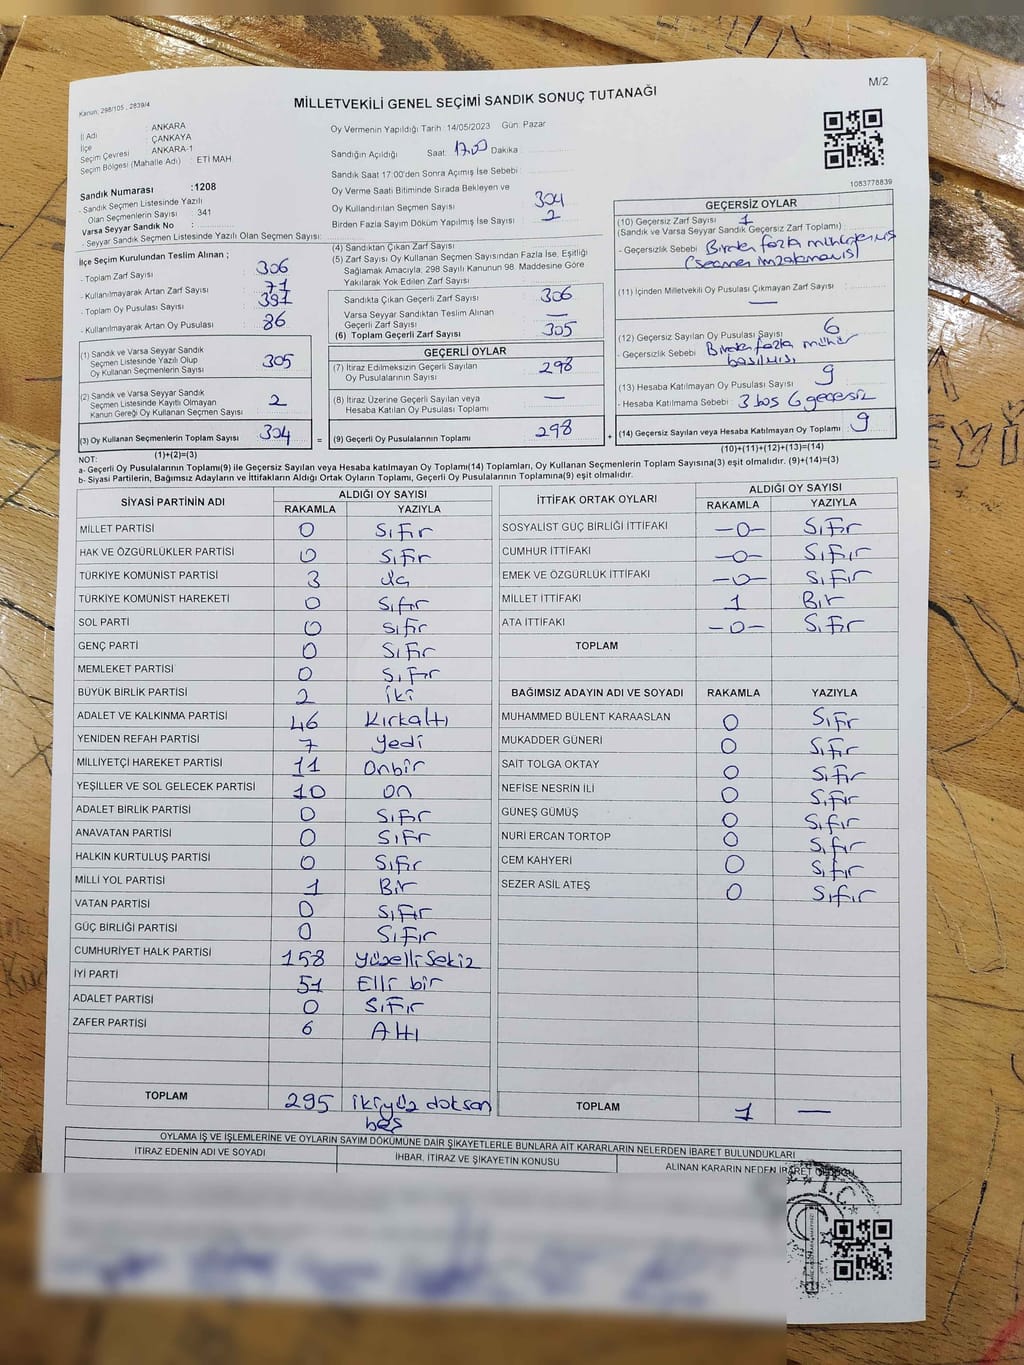 M/2
Kanun, 298/105 , 2839/4
MİLLETVEKİLİ GENEL SEÇİMİ SANDIK SONUÇ TUTANAĞI
İl Adı : ANKARA
İlçe : ÇANKAYA
Seçim Çevresi : ANKARA-1
Seçim Bölgesi (Mahalle Adı) : ETİ MAH.
Sandık Numarası :1208
- Sandık Seçmen Listesinde Yazılı
Olan Seçmenlerin Sayısı : 341
Varsa Seyyar Sandık No :
- Seyyar Sandık Seçmen Listesinde Yazılı Olan Seçmen Sayısı:
İlçe Seçim Kurulundan Teslim Alınan ;
- Toplam Zarf Sayısı 306
- Kullanılmayarak Artan Zarf Sayısı 71
- Toplam Oy Pusulası Sayısı 391
- Kullanılmayarak Artan Oy Pusulası 86
(1) Sandık ve Varsa Seyyar Sandık
Seçmen Listesinde Yazılı Olup
Oy Kullanan Seçmenlerin Sayısı 305
(2) Sandık ve Varsa Seyyar Sandık
Seçmen Listesinde Kayıtlı Olmayan
Kanun Gereği Oy Kullanan Seçmen Sayısı 2
(3) Oy Kullanan Seçmenlerin Toplam Sayısı 304 =
(1)+(2)=(3)
Oy Vermenin Yapıldığı Tarih : 14/05/2023 Gün: Pazar
Sandığın Açıldığı Saat: 17.00 Dakika :
Sandık Saat 17:00'den Sonra Açımış İse Sebebi :
Oy Verme Saati Bitiminde Sırada Bekleyen ve
Oy Kullandırılan Seçmen Sayısı : 304
Birden Fazla Sayım Döküm Yapılmış İse Sayısı : 2
(4) Sandıktan Çıkan Zarf Sayısı
(5) Zarf Sayısı Oy Kullanan Seçmen Sayısından Fazla İse, Eşitliği
Sağlamak Amacıyla, 298 Sayılı Kanunun 98. Maddesine Göre
Yakılarak Yok Edilen Zarf Sayısı :
Sandıkta Çıkan Geçerli Zarf Sayısı 306
Varsa Seyyar Sandıktan Teslim Alınan
Geçerli Zarf Sayısı —
(6) Toplam Geçerli Zarf Sayısı 305
GEÇERLİ OYLAR
(7) İtiraz Edilmeksizin Geçerli Sayılan
Oy Pusulalarının Sayısı 298
(8) İtiraz Üzerine Geçerli Sayılan veya
Hesaba Katılan Oy Pusulası Toplamı —
(9) Geçerli Oy Pusulalarının Toplamı 298 +
1083778839
GEÇERSİZ OYLAR
(10) Geçersiz Zarf Sayısı : 1
(Sandık ve Varsa Seyyar Sandık Geçersiz Zarf Toplamı)
- Geçersizlik Sebebi : Birden fazla mühürlenmiş
(seçmen imzalamamıs)
(11) İçinden Milletvekili Oy Pusulası Çıkmayan Zarf Sayısı :
—
(12) Geçersiz Sayılan Oy Pusulası Sayısı : 6
- Geçersizlik Sebebi : Birden fazla mühür
basılmıs
(13) Hesaba Katılmayan Oy Pusulası Sayısı : 9
- Hesaba Katılmama Sebebi : 3 bos 6 geçersiz
(14) Geçersiz Sayılan veya Hesaba Katılmayan Oy Toplamı : 9
(10)+(11)+(12)+(13)=(14)
NOT:
a- Geçerli Oy Pusulalarının Toplamı(9) ile Geçersiz Sayılan veya Hesaba katılmayan Oy Toplamı(14) Toplamları, Oy Kullanan Seçmenlerin Toplam Sayısına(3) eşit olmalıdır. (9)+(14)=(3)
b- Siyasi Partilerin, Bağımsız Adayların ve İttifakların Aldığı Ortak Oyların Toplamı, Geçerli Oy Pusulalarının Toplamına(9) eşit olmalıdır.
SİYASİ PARTİNİN ADI ALDIĞI OY SAYISI
RAKAMLA YAZIYLA
MİLLET PARTİSİ 0 Sıfır
HAK VE ÖZGÜRLÜKLER PARTİSİ 0 Sıfır
TÜRKİYE KOMÜNİST PARTİSİ 3 üç
TÜRKİYE KOMÜNİST HAREKETİ 0 Sıfır
SOL PARTİ 0 Sıfır
GENÇ PARTİ 0 Sıfır
MEMLEKET PARTİSİ 0 Sıfır
BÜYÜK BİRLİK PARTİSİ 2 iki
ADALET VE KALKINMA PARTİSİ 46 Kırkaltı
YENİDEN REFAH PARTİSİ 7 Yedi
MİLLİYETÇİ HAREKET PARTİSİ 11 Onbir
YEŞİLLER VE SOL GELECEK PARTİSİ 10 on
ADALET BİRLİK PARTİSİ 0 Sıfır
ANAVATAN PARTİSİ 0 Sıfır
HALKIN KURTULUŞ PARTİSİ 0 Sıfır
MİLLİ YOL PARTİSİ 1 Bir
VATAN PARTİSİ 0 Sıfır
GÜÇ BİRLİĞİ PARTİSİ 0 Sıfır
CUMHURİYET HALK PARTİSİ 158 yüzelli sekiz
İYİ PARTİ 51 Elli bir
ADALET PARTİSİ 0 Sıfır
ZAFER PARTİSİ 6 Altı
TOPLAM 295 ikiyüz doksan
beş
İTTİFAK ORTAK OYLARI ALDIĞI OY SAYISI
RAKAMLA YAZIYLA
SOSYALİST GÜÇ BİRLİĞİ İTTİFAKI —0— Sıfır
CUMHUR İTTİFAKI —0— Sıfır
EMEK VE ÖZGÜRLÜK İTTİFAKI —0— Sıfır
MİLLET İTTİFAKI 1 Bir
ATA İTTİFAKI —0— Sıfır
TOPLAM
BAĞIMSIZ ADAYIN ADI VE SOYADI RAKAMLA YAZIYLA
MUHAMMED BÜLENT KARAASLAN 0 Sıfır
MUKADDER GÜNERİ 0 Sıfır
SAİT TOLGA OKTAY 0 Sıfır
NEFİSE NESRİN İLİ 0 Sıfır
GÜNEŞ GÜMÜŞ 0 Sıfır
NURİ ERCAN TORTOP 0 Sıfır
CEM KAHYERİ 0 Sıfır
SEZER ASİL ATEŞ 0 Sıfır
TOPLAM 1 —
OYLAMA İŞ VE İŞLEMLERİNE VE OYLARIN SAYIM DÖKÜMÜNE DAİR ŞİKAYETLERLE BUNLARA AİT KARARLARIN NELERDEN İBARET BULUNDUKLARI
İTİRAZ EDENİN ADI VE SOYADI İHBAR, İTİRAZ VE ŞİKAYETİN KONUSU ALINAN KARARIN NEDEN İBARET
T.C.